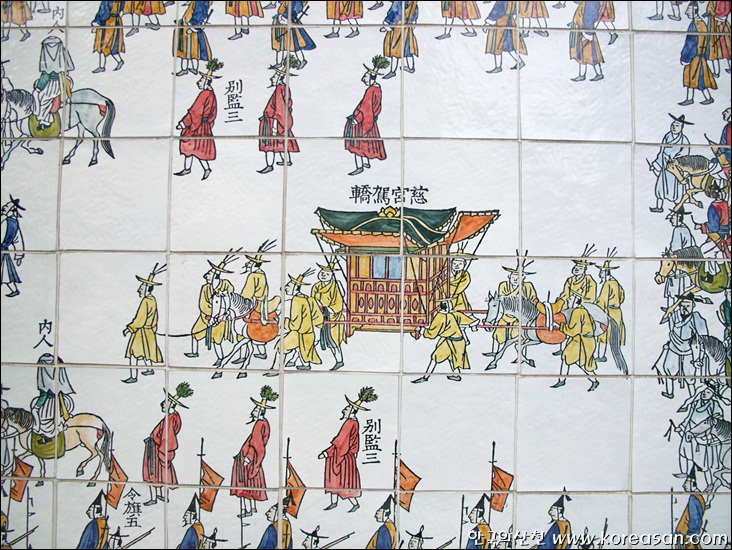 內
別監三
慈宮駕轎
內人
別監三
令旗五
한국의산천 www.koreasan.com